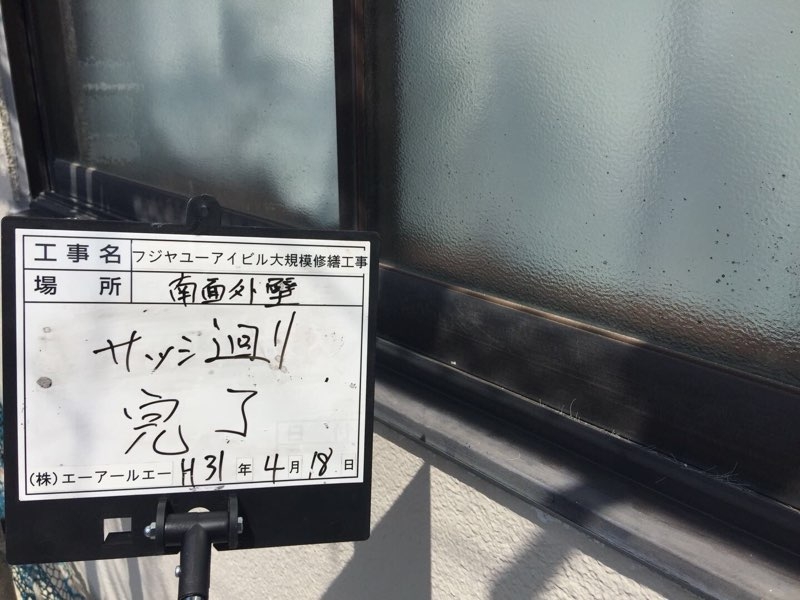 工事名 フジヤユーアイビル大規模修繕工事
場所 南面外壁
サッシ廻り
完了
(株)エーアールエー H31年4月18日